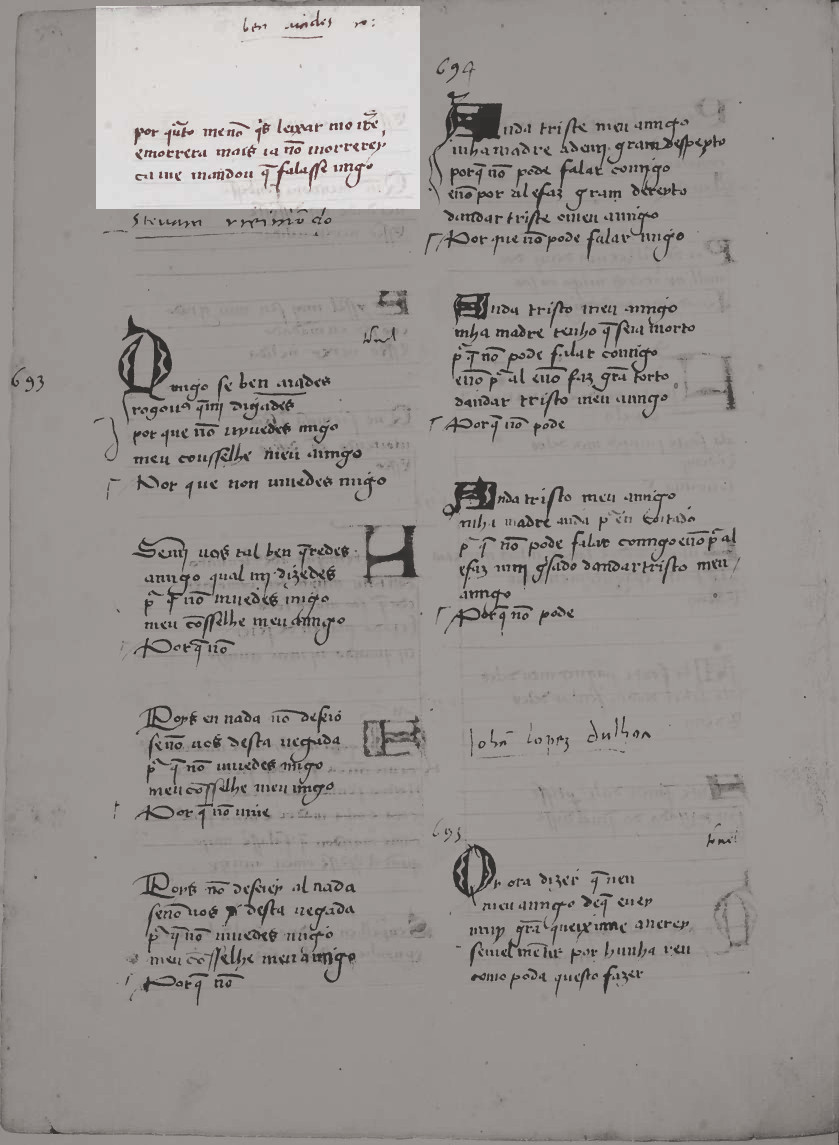 ben
por q̃to me nõ q̃s leixar
e morrera mais ia nõ morrerey
ca me mandou q̃ falasse migo
Stevam
693
tonel
Amigo se ben aiades
rogovꝯ q̃ mi digades
por que nõ vyvedes migo
meu consselhe meu amigo
Por que non vivedes migo
Senj uos tal ben q̃redes
amigo qual mj dizedes
p̃ q̃ nõ vivedes migo
meu cõsselhe meu amigo
Por q̃ nõ
Poys en nada nõ desejo
senõ uos desta uegada
p̃ q̃ nõ vivedes migo
meu cõsselhe meu amigo
Por q̃ nõ vive
Poys nõ desejey al nada
senõ uos desta uegada
p̃ q̃ nõ vivedes migo
meu cõsselhe meu amigo
Por q̃ nõ
694
Anda triste meu amigo
mha madre a de mj gram despeyto
porq̃ nõ pode falar comigo
e nõ por al e faz gram dereyto
dandar triste o meu amigo
Por que nõ pode falar migo
Anda tristo meu amigo
mha madre tenho q̃ seia morto
p̃ q̃ nõ pode falar comigo
e nõ p̃ al e nõ faz grã torto
dandar tristo meu amigo
Porq̃ nõ pode
Anda tristo meu amigo
mha madre anda p̃ en coitado
p̃ q̃ nõ pode falar comigo e nõ p̃ al
e faz mui g̃sado dandar tristo meu
amigo
Porq̃ nõ pode
Johã lopez dulhoa
695
tonel
Or ora dizer q̃ ven
meu amigo de q̃ eu ey
muy grã queixume a uerey
se mel mẽtir por hunha ren
como poda questo fazer